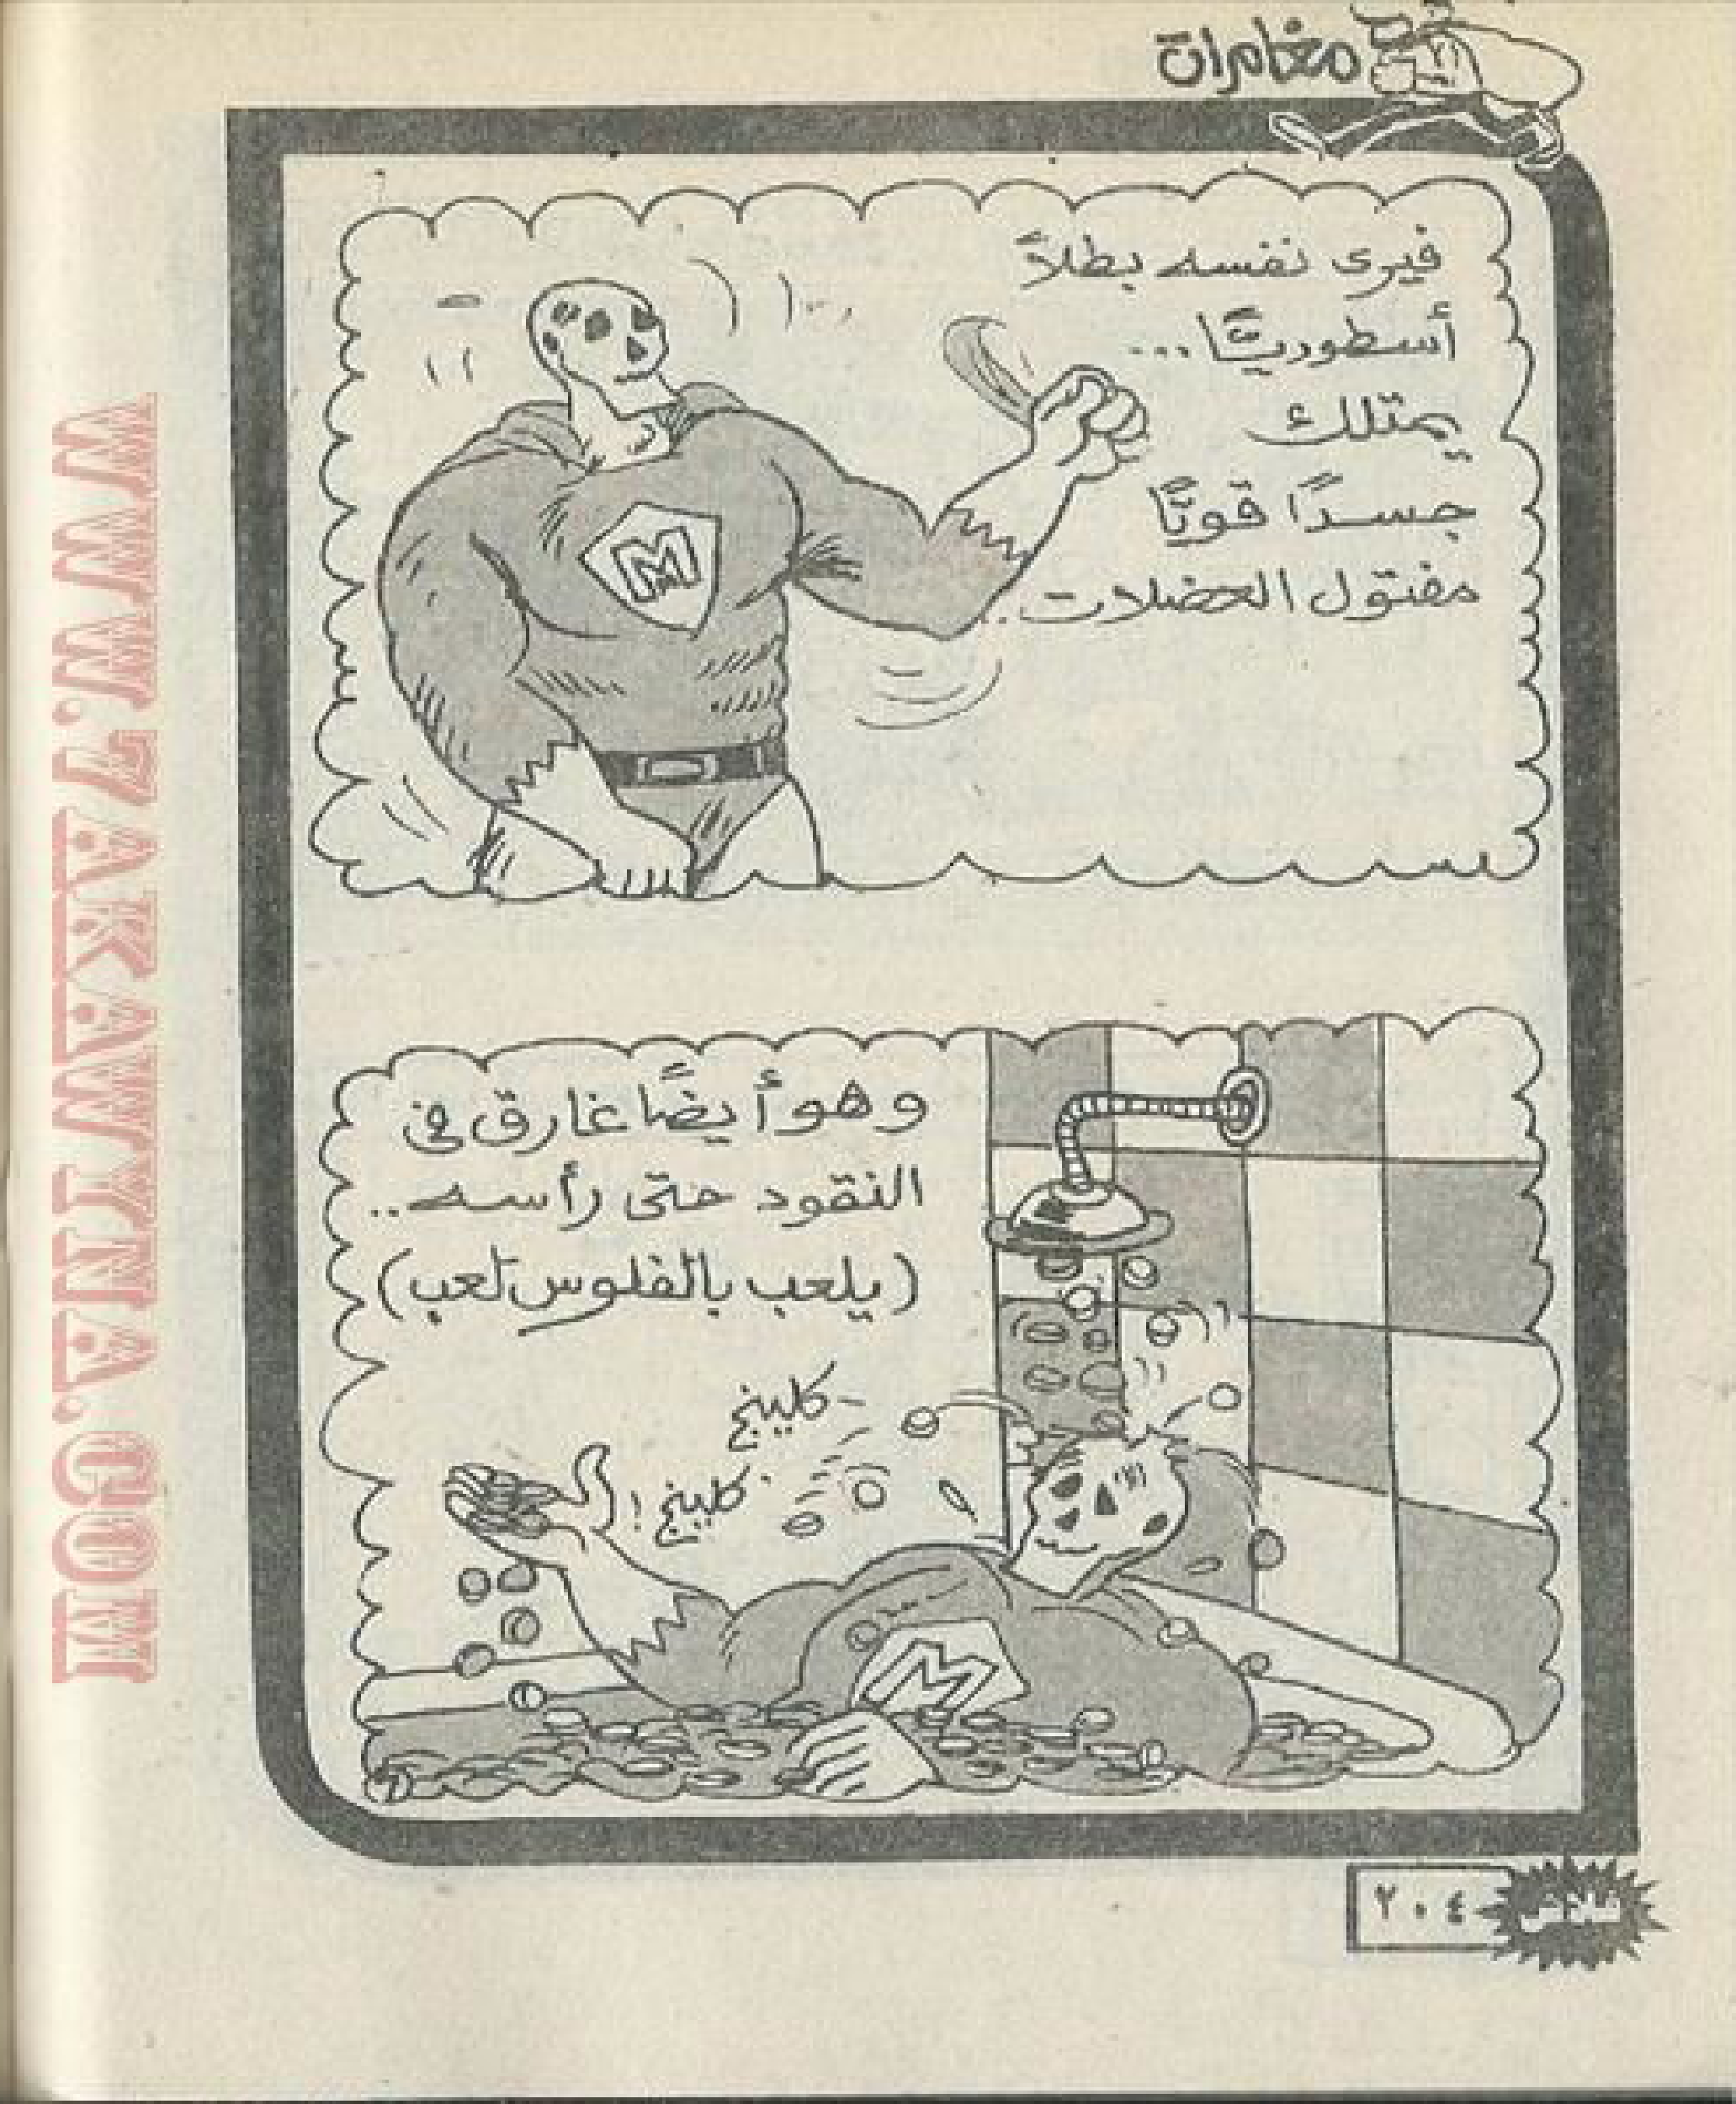 مغامرات
فيرى نفسه بطلاً
أسطوريًّا...
يمتلك
جسدًا قويًّا
مفتول العضلات..
M
وهو أيضًا غارق في
النقود حتى رأسه..
(يلعب بالفلوس لعب)
كلينج
كلينج!
M
٢٠٤
فلاش
WWW.7AKAWINA.COM